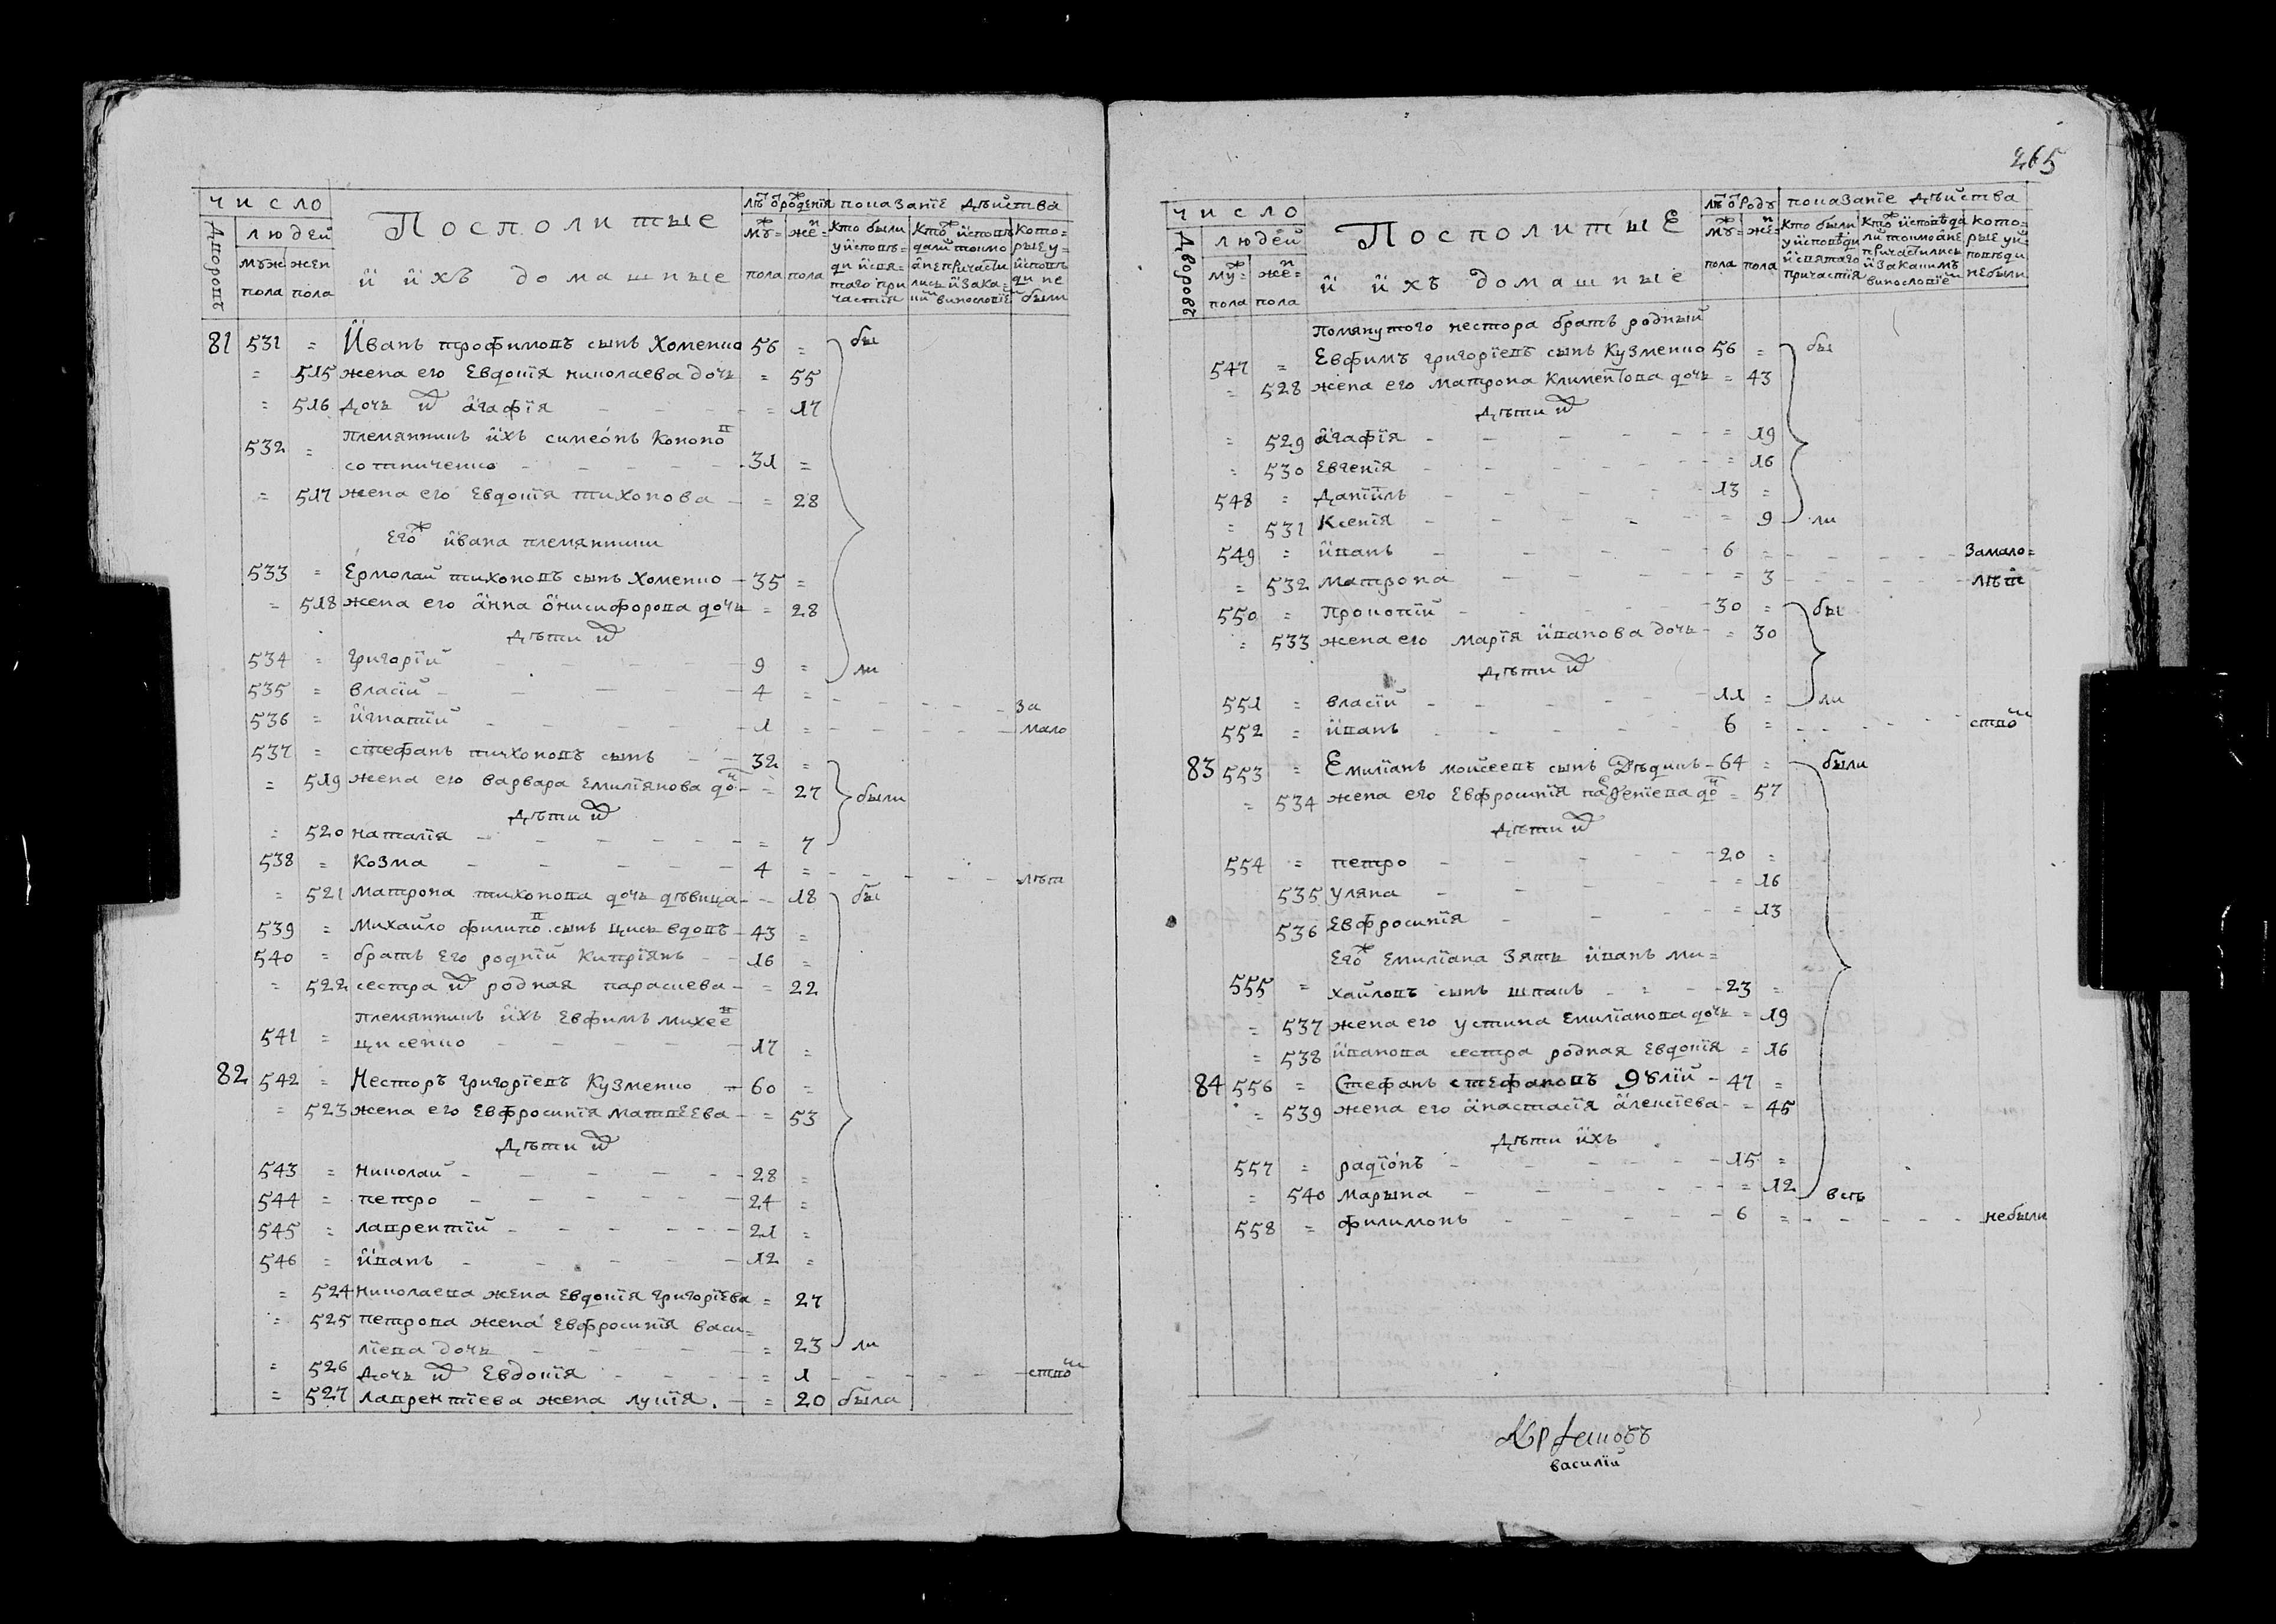 число
Посполитые
лѣтъ ѿ рождения
показание дѣиства
Дворовъ
людей
и ихъ домашные
муж пола
жен пола
муж пола
жен пола
Кто были у исповѣди и святаго причастия
Кто ж исповѣдались токмо а не причастились и за каким винословием
Которые у исповѣди не были
81 531 = Иванъ трофимовъ сынъ Хоменко 56 = бы
= 515 жена его Евдокия николаева дочь = 55
= 516 Дочь их агафия = 17
532 = племянникъ ихъ симеонъ Кононов
сотниченко 31 =
= 517 жена его Евдокия тихонова = 28
Его ж ивана племянники
533 = Ермолай тихоновъ сынъ Хоменко 35 =
= 518 жена его анна онисифорова дочь = 28
Дѣти их
534 = григорий 9 = ли
535 = власий 4 = За
536 = игнатий 1 = мало
537 = стефанъ тихоновъ сынъ 32 =
= 519 жена его варвара Емилиянова доч = 27 были
Дѣти их
= 520 наталия = 7
538 = Козма 4 = лѣт
= 521 матрона тихонова дочь дѣвица 18 бы
539 = михайло филипов сынъ цись вдовъ 43 =
540 = братъ его родний Киприянъ 16 =
= 522 сестра их родная параскева = 22
541 = племянникъ ихъ Евфимъ михеев
цисенко 17 =
82 542 = Несторъ григориевъ Кузменко 60 =
= 523 жена его Евфросиния матвеева = 53
Дѣти их
543 = николай 28 =
544 = петро 24 =
545 = лаврентий 21 =
546 = иванъ 12 =
= 524 николаева жена Евдокия григориева = 27
= 525 петрова жена Евфросиния васи=
лиева дочь = 23 ли
= 526 дочь их Евдокия = 1 ством
= 527 лаврентиева жена лукия = 20 была
265
число
Посполитые
лѣтъ ѿ роду
показание дѣиства
Дворовъ
людей
и ихъ домашные
муж= пола
жен= пола
муж= пола
жен= пола
Кто были у исповѣди и святаго причастия
Кто ж исповѣдали токмо а не причастились и за каким винословием
которые у исповѣди не были
помянутого нестора братъ родный
547 = Евфимъ григориевъ сынъ Кузменко 56 = бы
= 528 жена его матрона климентова дочь = 43
Дѣти их
= 529 агафия = 19
= 530 Евгения = 16
548 = даниилъ 13 =
= 531 Ксения = 9 ли
549 = иванъ 6 = Замало=
= 532 матрона = 3 лѣт
550 = прокопий 30 = бы
= 533 жена его мария иванова дочь = 30
дѣти их
551 = власий 11 = ли
552 = иванъ 6 = ством
83 553 = Емилианъ моисеевъ сынъ Дѣдикъ 64 = были
= 534 жена его Евфросиния парфениева доч = 57
дѣти их
554 = петро 20 =
535 уляна = 16
536 Евфросиния = 13
Его ж Емилиана зять иванъ ми=
555 = хайловъ сынъ шпакъ 23 =
= 537 жена его устина Емилианова дочь = 19
= 538 иванова сестра родная Евдокия = 16
84 556 = Стефанъ стефановъ 47 =
= 539 жена его анастасия алексиева = 45
дѣти ихъ
557 = радионъ 15 =
= 540 марына = 12 всѣ
558 = филимонъ 6 = небыли
василий